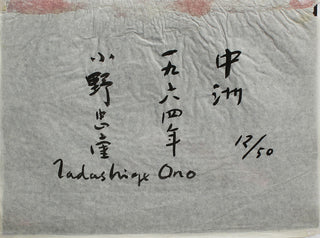 中洲
一九六四年
小野忠重
12/50
Tadashige Ono